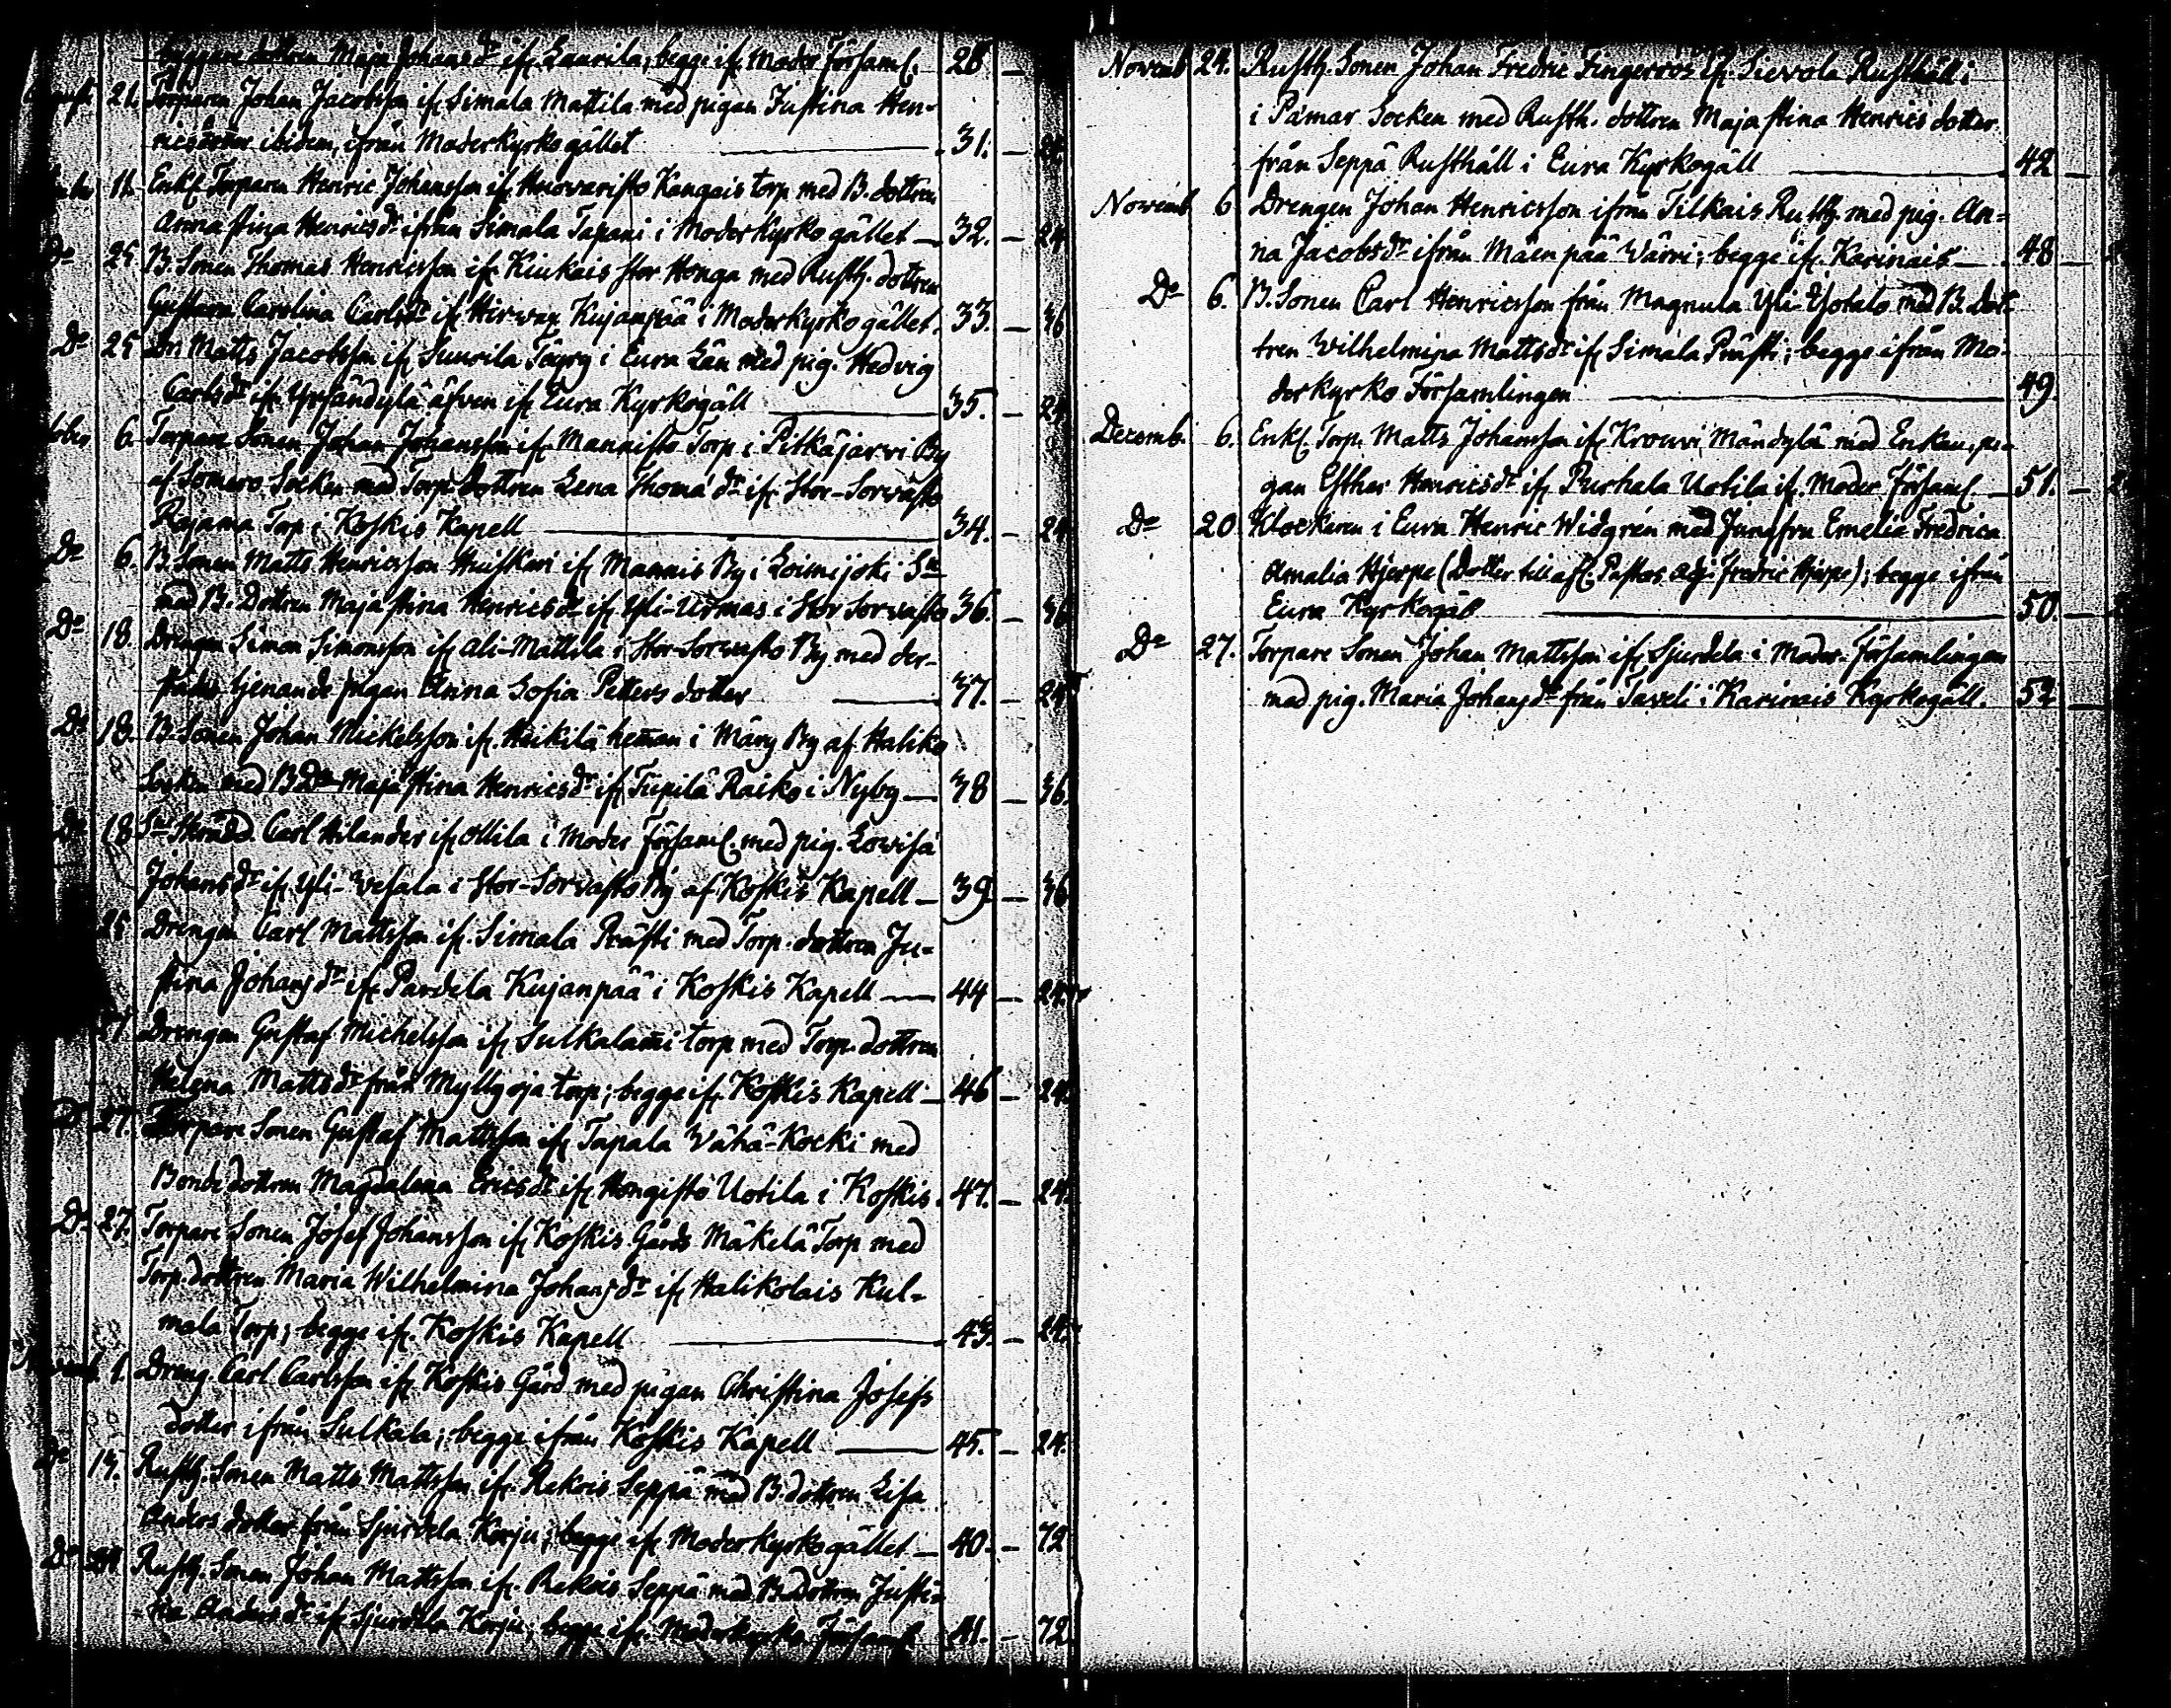 dottren Maja Johansdr ifr. Laurila; begge ifr. Moder Församl. 28. —
21. Torparen Johan Jacobsson ifr. Simala Mattila med pigan Justina Hen-
ricsdotter ibidem, ifrån Moderkyrkogället — 31. — 24.
11. Enkl. Torparen Henric Johansson ifr. Kangais torp med B. dottren
Anna Stina Henricsdr ifrån Simala Tapani i Moderkyrkogället — 32. — 24
Do 25 B. Sonen Thomas Henricsson ifr. Kiukais Stor Honga med Rusth. dottren
Gustava Carolina Carlsdr ifr. Hirwax Kujanpää i Moderkyrkogället. 33. — 36
Do 25 Matts Jacobsson ifr. Suurila i Eura Län med pig. Hedvig
Carlsdr ifr. äfven ifr. Eura Kyrkogäll — 35. — 24
6. Torpare Sonen Johan Johansson ifr. Mannisto Torp i Pitkäjärvi By
af Somero Socken med Torp. Dottren Lena Thomädr ifr. Stor-Sorvasto
Rajama Torp i Koskis Kapell — 34. — 24
Do 6. B. Sonen Matts Henricsson Huiskari ifr. Mannis By i Loimijoki Sn
med B. Dottren Maja Stina Henricsdr ifr. Yli-Urmas i Stor Sorvasto 36. — 36
Do 18. Drengen Simon Simonsson ifr. Ali-Mattila i Stor-Sorvasto By med der-
städes tjenande pigan Anna Sofia Petters dotter — 37. — 24
Do 18. B. Sonen Johan Mickelsson ifr. Heikilä heman i Märy By af Haliko
Socken med B Dr Maja Stina Henricsdr ifr. Tupilä Raiko i Nyby — 38 — 36.
Do 18 Carl Arlander ifr. Ollila i Moder Församl. med pig. Lowisa
Johansdr ifr. Yli-Wesala i Stor-Sorvasto By af Koskis Kapell — 39 — 36
25 Drengen Carl Mattsson ifr. Simala Prästi med Torp. dottren Ju-
stina Johansdr ifr. Pardela Kujanpää i Koskis Kapell — 44 — 24.
27. Drengen Gustaf Michelsson ifr. Sulkalami torp med Torp. dottren
Helena Mattsdr från Myllyoja torp; begge ifr. Koskis Kapell — 46 — 24.
D 27. Torpare Sonen Gustaf Mattsson ifr. Tapala Wähä-Kocki med
Bonde dottren Magdalena Ericsdr ifr. Hongisto Uotila i Koskis. 47. — 24.
Do 27. Torpare Sonen Josef Johansson ifr. Koskis Gårds Mäkelä Torp med
Torp. dottren Maria Wilhelmina Johansdr ifr. Halikolais Kul-
mala Torp; begge ifr. Koskis Kapell — 43. — 24.
1. Dreng. Carl Carlsson ifr. Koskis Gård med pigan Christina Josefs
dotter ifrån Sulkala; begge ifrån Koskis Kapell — 45. — 24.
Do 15. Rusth. Sonen Matts Mattsson ifr. Rekois Seppä med B. dottren Lisa
Anders dotter från Sjurdela Korju; begge ifr. Moderkyrkogället — 40. — 72
Do Rusth. Sonen Johan Mattsson ifr. Rekois Seppä med B. dottren Justi-
na Andersdr ifr. Sjurdela Korju; begge ifr. Moderkyrko Församl 41. — 72
Novemb 24. Rusth. Sonen Johan Fredric Fingerroos ifr. Sievola Rusthåll i
i Pämar Socken med Rusth. dottren Maja Stina Henrics dotter
från Seppä Rusthåll i Eura Kyrkogäll — 42 —
Novemb 6 Drengen Johan Henricsson ifrån Tilkais Rusth. med pig. An-
na Jacobsdr ifrån Mäenpää Wärri; begge ifr. Karinais — 48 —
Do 6. B. Sonen Carl Henricsson från Magnula Yli-Eskalo med B. dot-
tren Wilhelmina Mattsdr ifr. Simala Prästi; begge ifrån Mo-
derkyrko Församlingen — 49
Decemb. 6. Enkl. Torp. Matts Johansson ifr. Krouvi Mändylä med Enkan, pi-
gan Esther Henricsdr ifr. Purhala Uotila ifr. Moder Församl. — 51. —
Do 20 Klockaren i Eura Henric Widgrén med Jungfru Emelie Fredrica
Amalia Hjerpe (Dotter till afl. Pastors Adj. Fredric Hjerpe); begge ifrån
Eura Kyrkogäll — 50. —
Do 27. Torpare Sonen Johan Mattsson ifr. Sjurdela i Moder-Församlingen
med pig. Maria Johansdr från Taveli i Karinais Kyrkogäll. 52 —